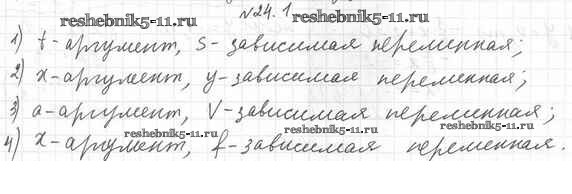 №24.1
reshebnik5-11.ru reshebnik5-11.ru
1) t-аргумент, s-зависимая переменная;
2) x-аргумент, y-зависимая переменная;
3) a-аргумент, V-зависимая переменная;
reshebnik5-11.ru reshebnik5-11.ru
4) x-аргумент, f-зависимая переменная.